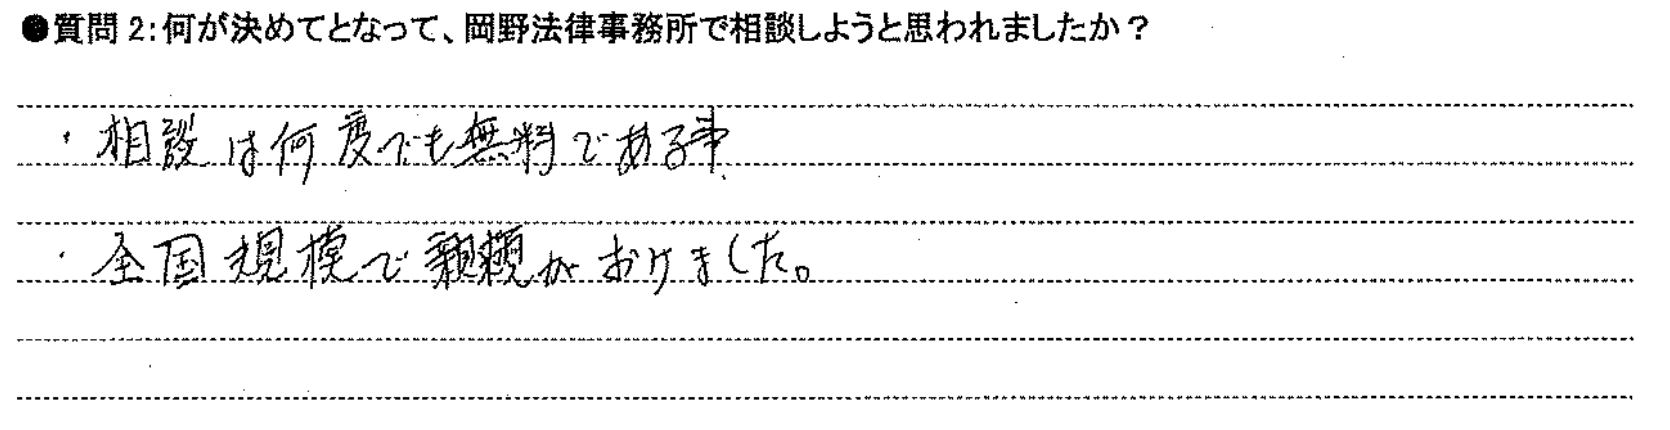 ●質問2:何が決めてとなって、岡野法律事務所で相談しようと思われましたか？
・相談は何度でも無料である事
・全国規模で親頼がおけました。